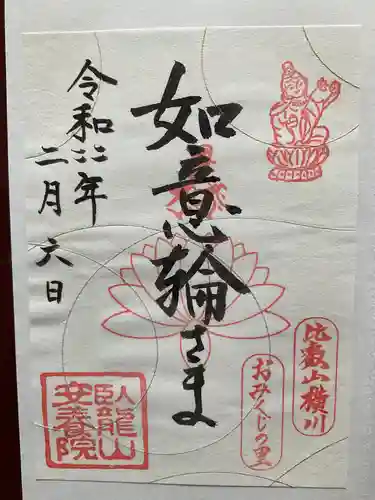 比叡山横川
おみくじの里
如意輪さま
令和二年
二月六日
臥龍山
安養院